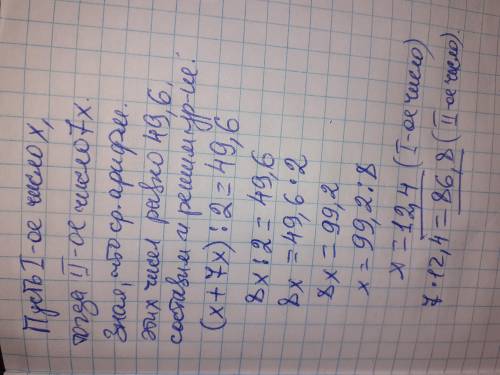 Пусть I-ое число x,
тогда II-ое число 7x.
Зная, что ср. арифм.
этих чисел равно 49,6,
составим и решим ур-ие:
(x+7x):2=49,6
8x:2=49,6
8x=49,6·2
8x=99,2
x=99,2:8
x=12,4 (I-ое число)
7·12,4=86,8 (II-ое число).